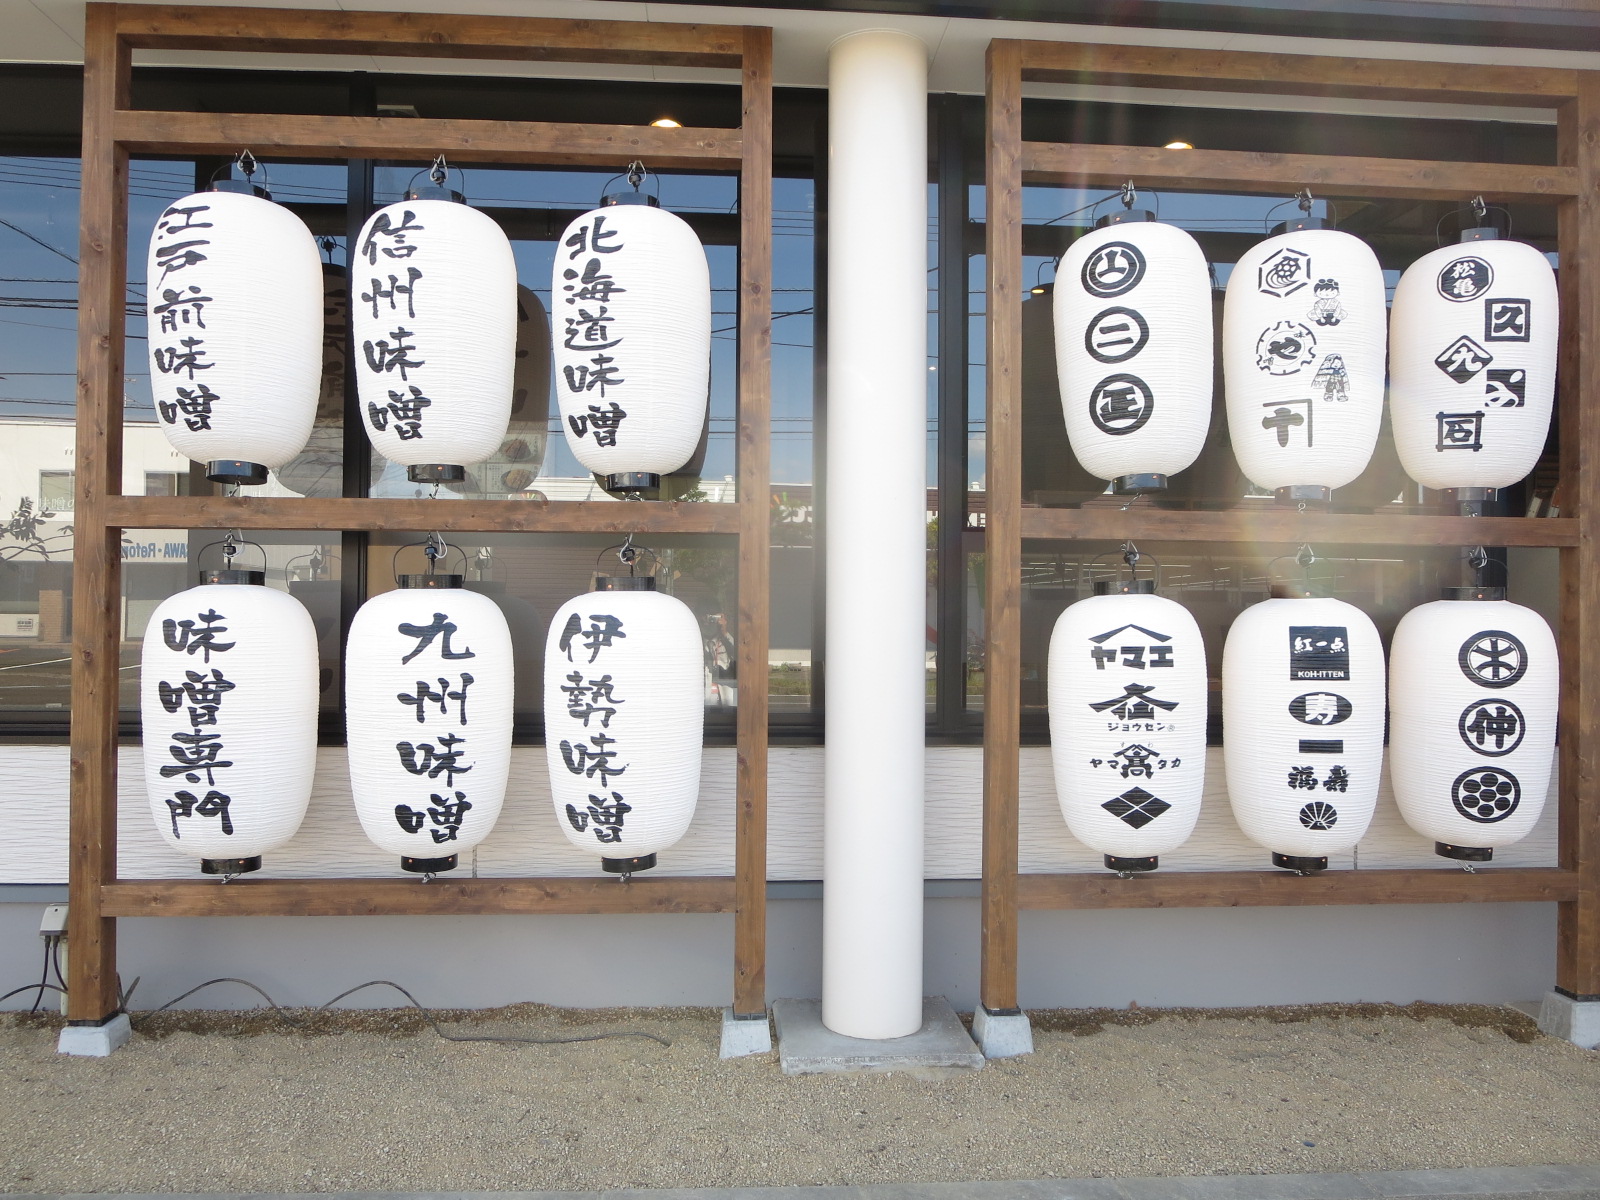 江戸前味噌
信州味噌
北海道味噌
味噌専門
九州味噌
伊勢味噌
山
二
正
や
十
松亀
久
九
石
ヤマエ
仙
ジョウセン
髙
ヤマタカ
紅一点
KOH-ITTEN
寿
一
福寿
本
仲